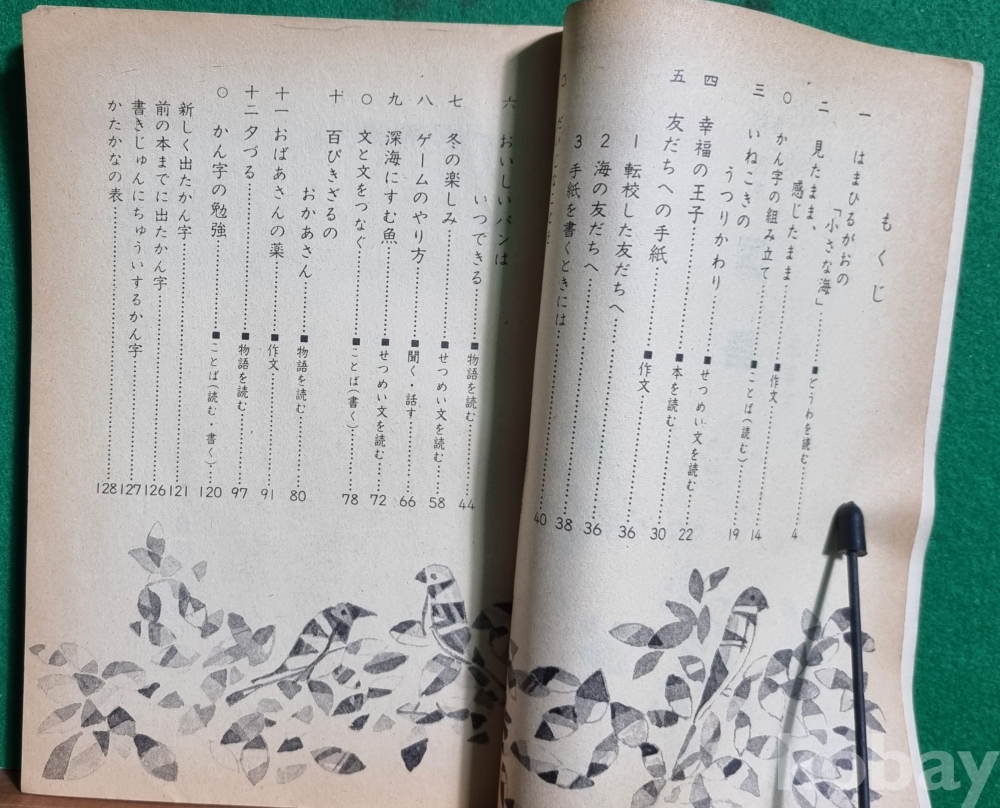 もくじ
一 はまひるがおの
「小さな海」 ■どうわを読む 4
二 見たまま、
感じたまま ■作文 14
○ かん字の組み立て ■ことば(読む) 19
三 いねこきの
うつりかわり ■せつめい文を読む 22
四 幸福の王子 ■本を読む 30
五 友だちへの手紙 ■作文 36
1 転校した友だちへ 36
2 海の友だちへ 38
3 手紙を書くときには 40
○
六 おいしいパンは
いつできる ■物語を読む 44
七 冬の楽しみ ■せつめい文を読む 58
八 ゲームのやり方 ■聞く・話す 66
九 深海にすむ魚 ■せつめい文を読む 72
○ 文と文をつなぐ ■ことば(書く) 78
十 百ぴきざるの
おかあさん ■物語を読む 80
十一 おばあさんの薬 ■作文 91
十二 夕づる ■物語を読む 97
○ かん字の勉強 ■ことば(読む・書く) 120
新しく出たかん字 121
前の本までに出たかん字 126
書きじゅんにちゅういするかん字 127
かたかなの表 128
kobay